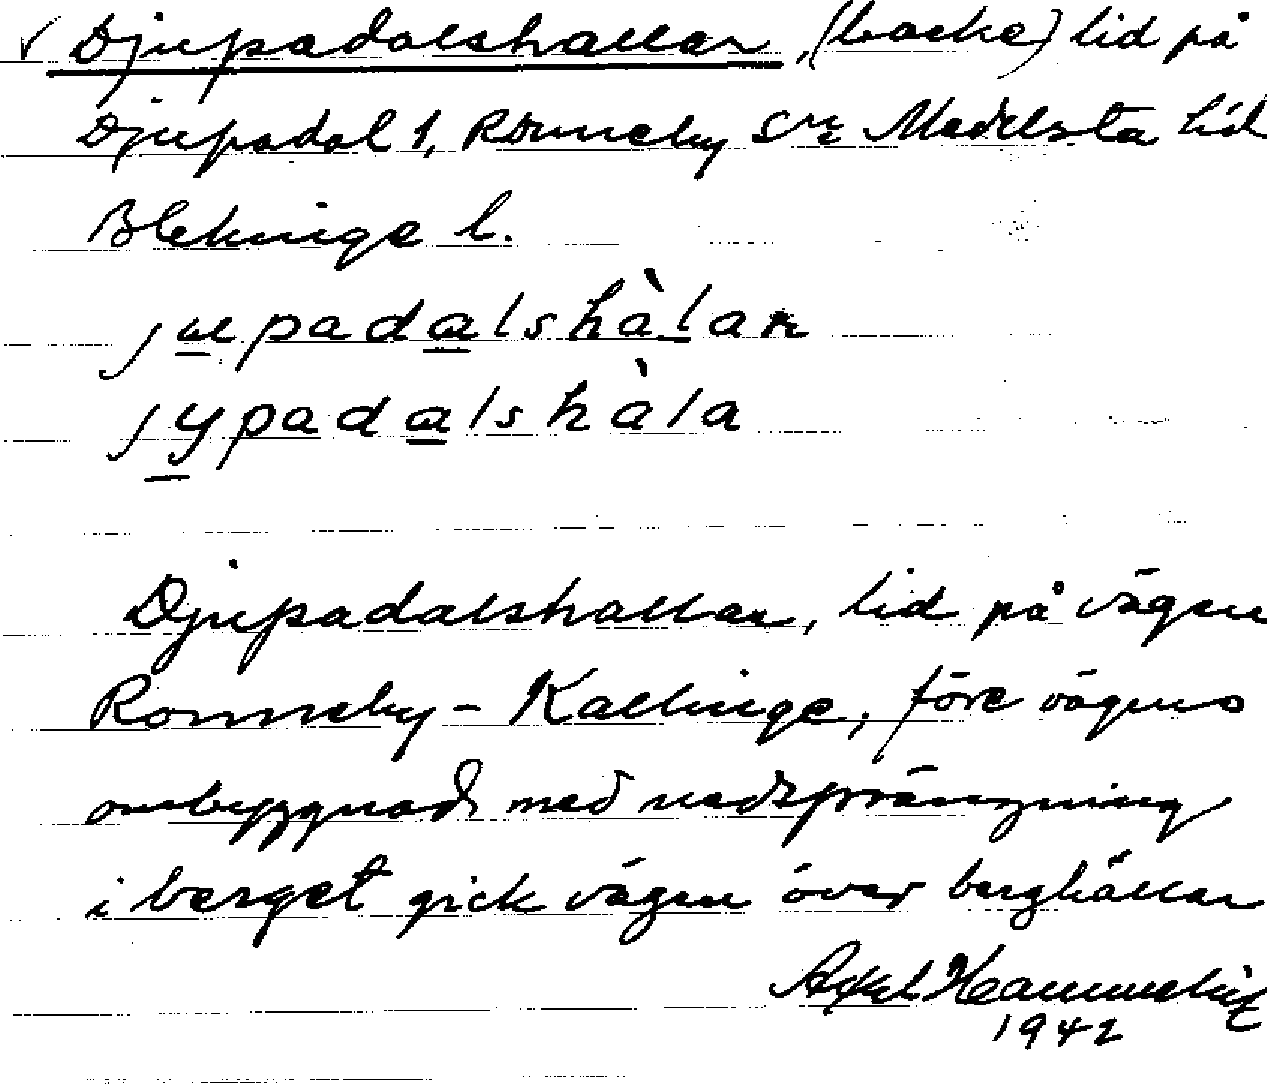 ✓ Djupadalshallar, (backe) lid på
Djupadal 1, Ronneby sn Medelsta hd
Blekinge l.
jupadalshàlar
jypadalshàla
Djupadalshallar, lid på vägen
Ronneby - Kallinge, före vägens
ombyggnad med nedsprängning
i berget gick vägen över berghällar
Axel
1942